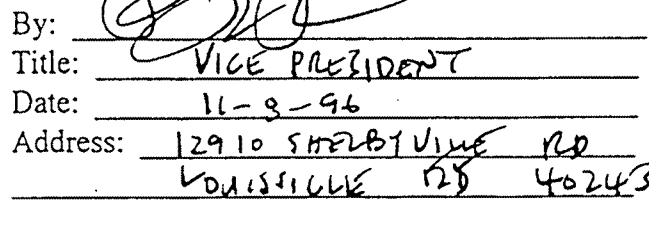 By:
Title: VICE PRESIDENT
Date: 11-8-96
Address: 12910 SHELBYVILLE RD
LOUISVILLE KY 40243